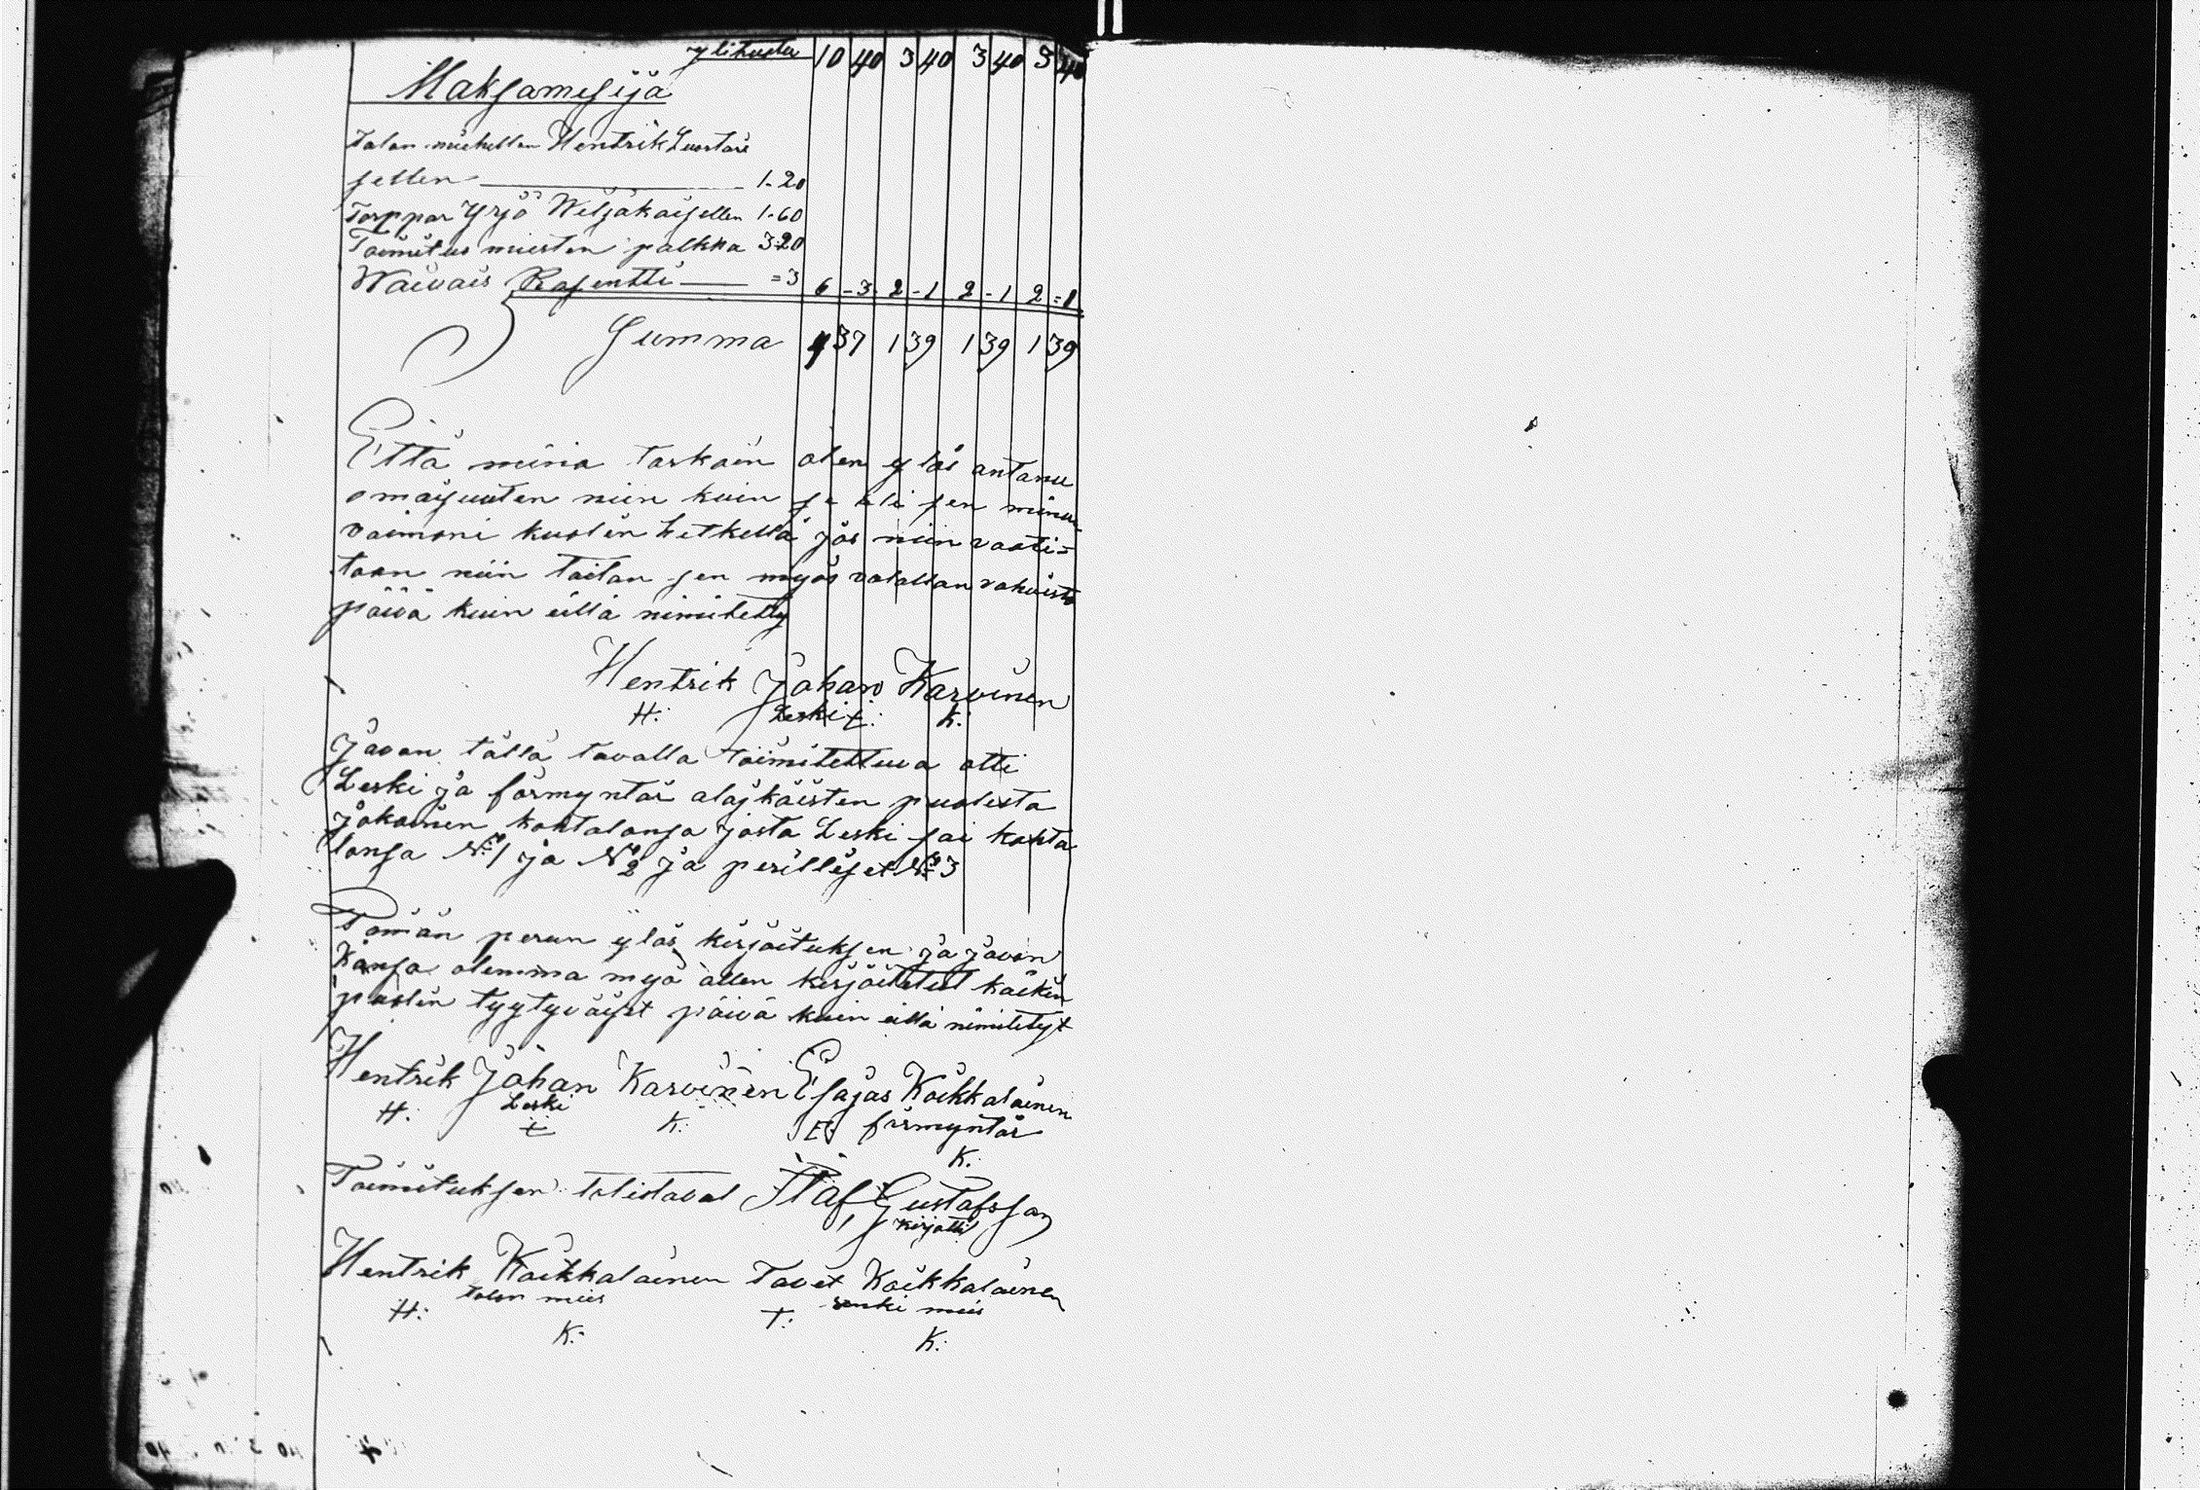 ylihuster 10 40 3 40 3 40 3 40
Maksamesija
Talon miehellen Hentrik Luostari
sellen 1-20
Torppar Yrjö Weljäkaisellen 1-60
Toimitus miesten palkka 3 20
Waivais Rosentti =3 6 -3- 2 -1 2 -1 2 =1
Summa 4 37 1 39 1 39 1 39
Että minä tarkoin olen ylös antanu
omaisuuten niin kuin se oli sen minun
vaimoni kuolin hetkellä jos niin vaati=
taan niin taitan sen myös valallan vahvista
päivä kuin üllä nimitetty
Hentrik Johan Karvinen
H: Leski t: K:
Jaon tällä tavalla toimitettuva otti
Leski ja förmyntär alaskäisten puolesta
jokainen kohtalonsa josta Leski sai kohta
lonsa No 1 ja No 2 ja perilliset No 3
Tämän perun ylös kirjoituksen ja jaon
Kansa olemma myö allen kirjoitetut kaikin
puolin tyytyväist päivä kuin üllä nimitetyt
Hentrik Johan Karvinen Esajas Koikkalainen
H. Leski t K. E: förmyntär
K.
Toimituksen totistavat Staf, Gustafsson
kirjotti
Hentrik Koikkalainen Tavet Koikkalainen
H: talon mies T: renki mies
K: K: